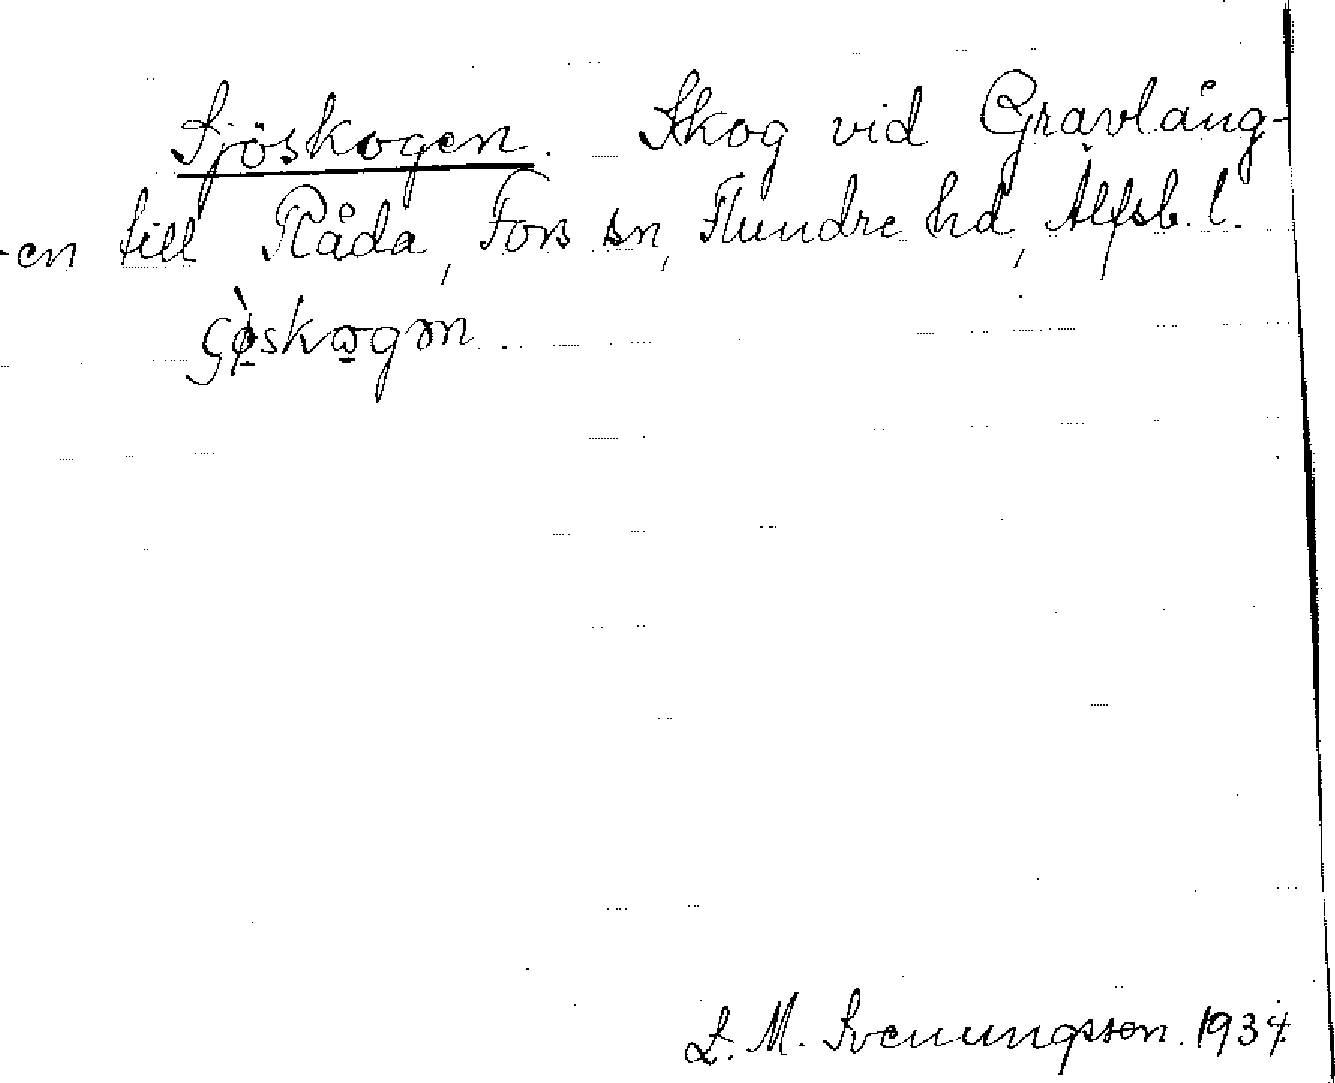 Sjöskogen. Skog vid Gravlång-
-en till Råda, Fors sn, Flundre hd, Älfsb. l.
L. M. Svenungsson. 1934.